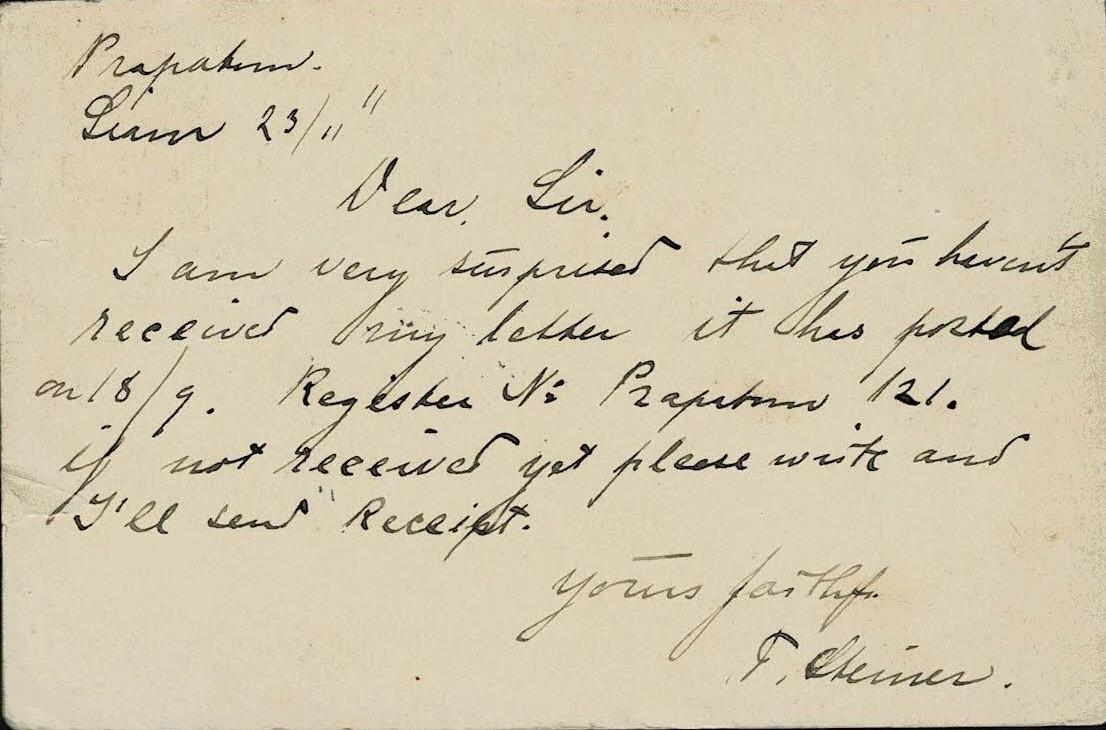 Prapatom.
Siam 23/11 11
Dear, Sir.
I am very surprised that you havent
received my letter it has posted
on 18/9. Register No Prapatom 121.
if not received yet please write and
I'll send Receipt.
yours faithf.
T. Steiner.